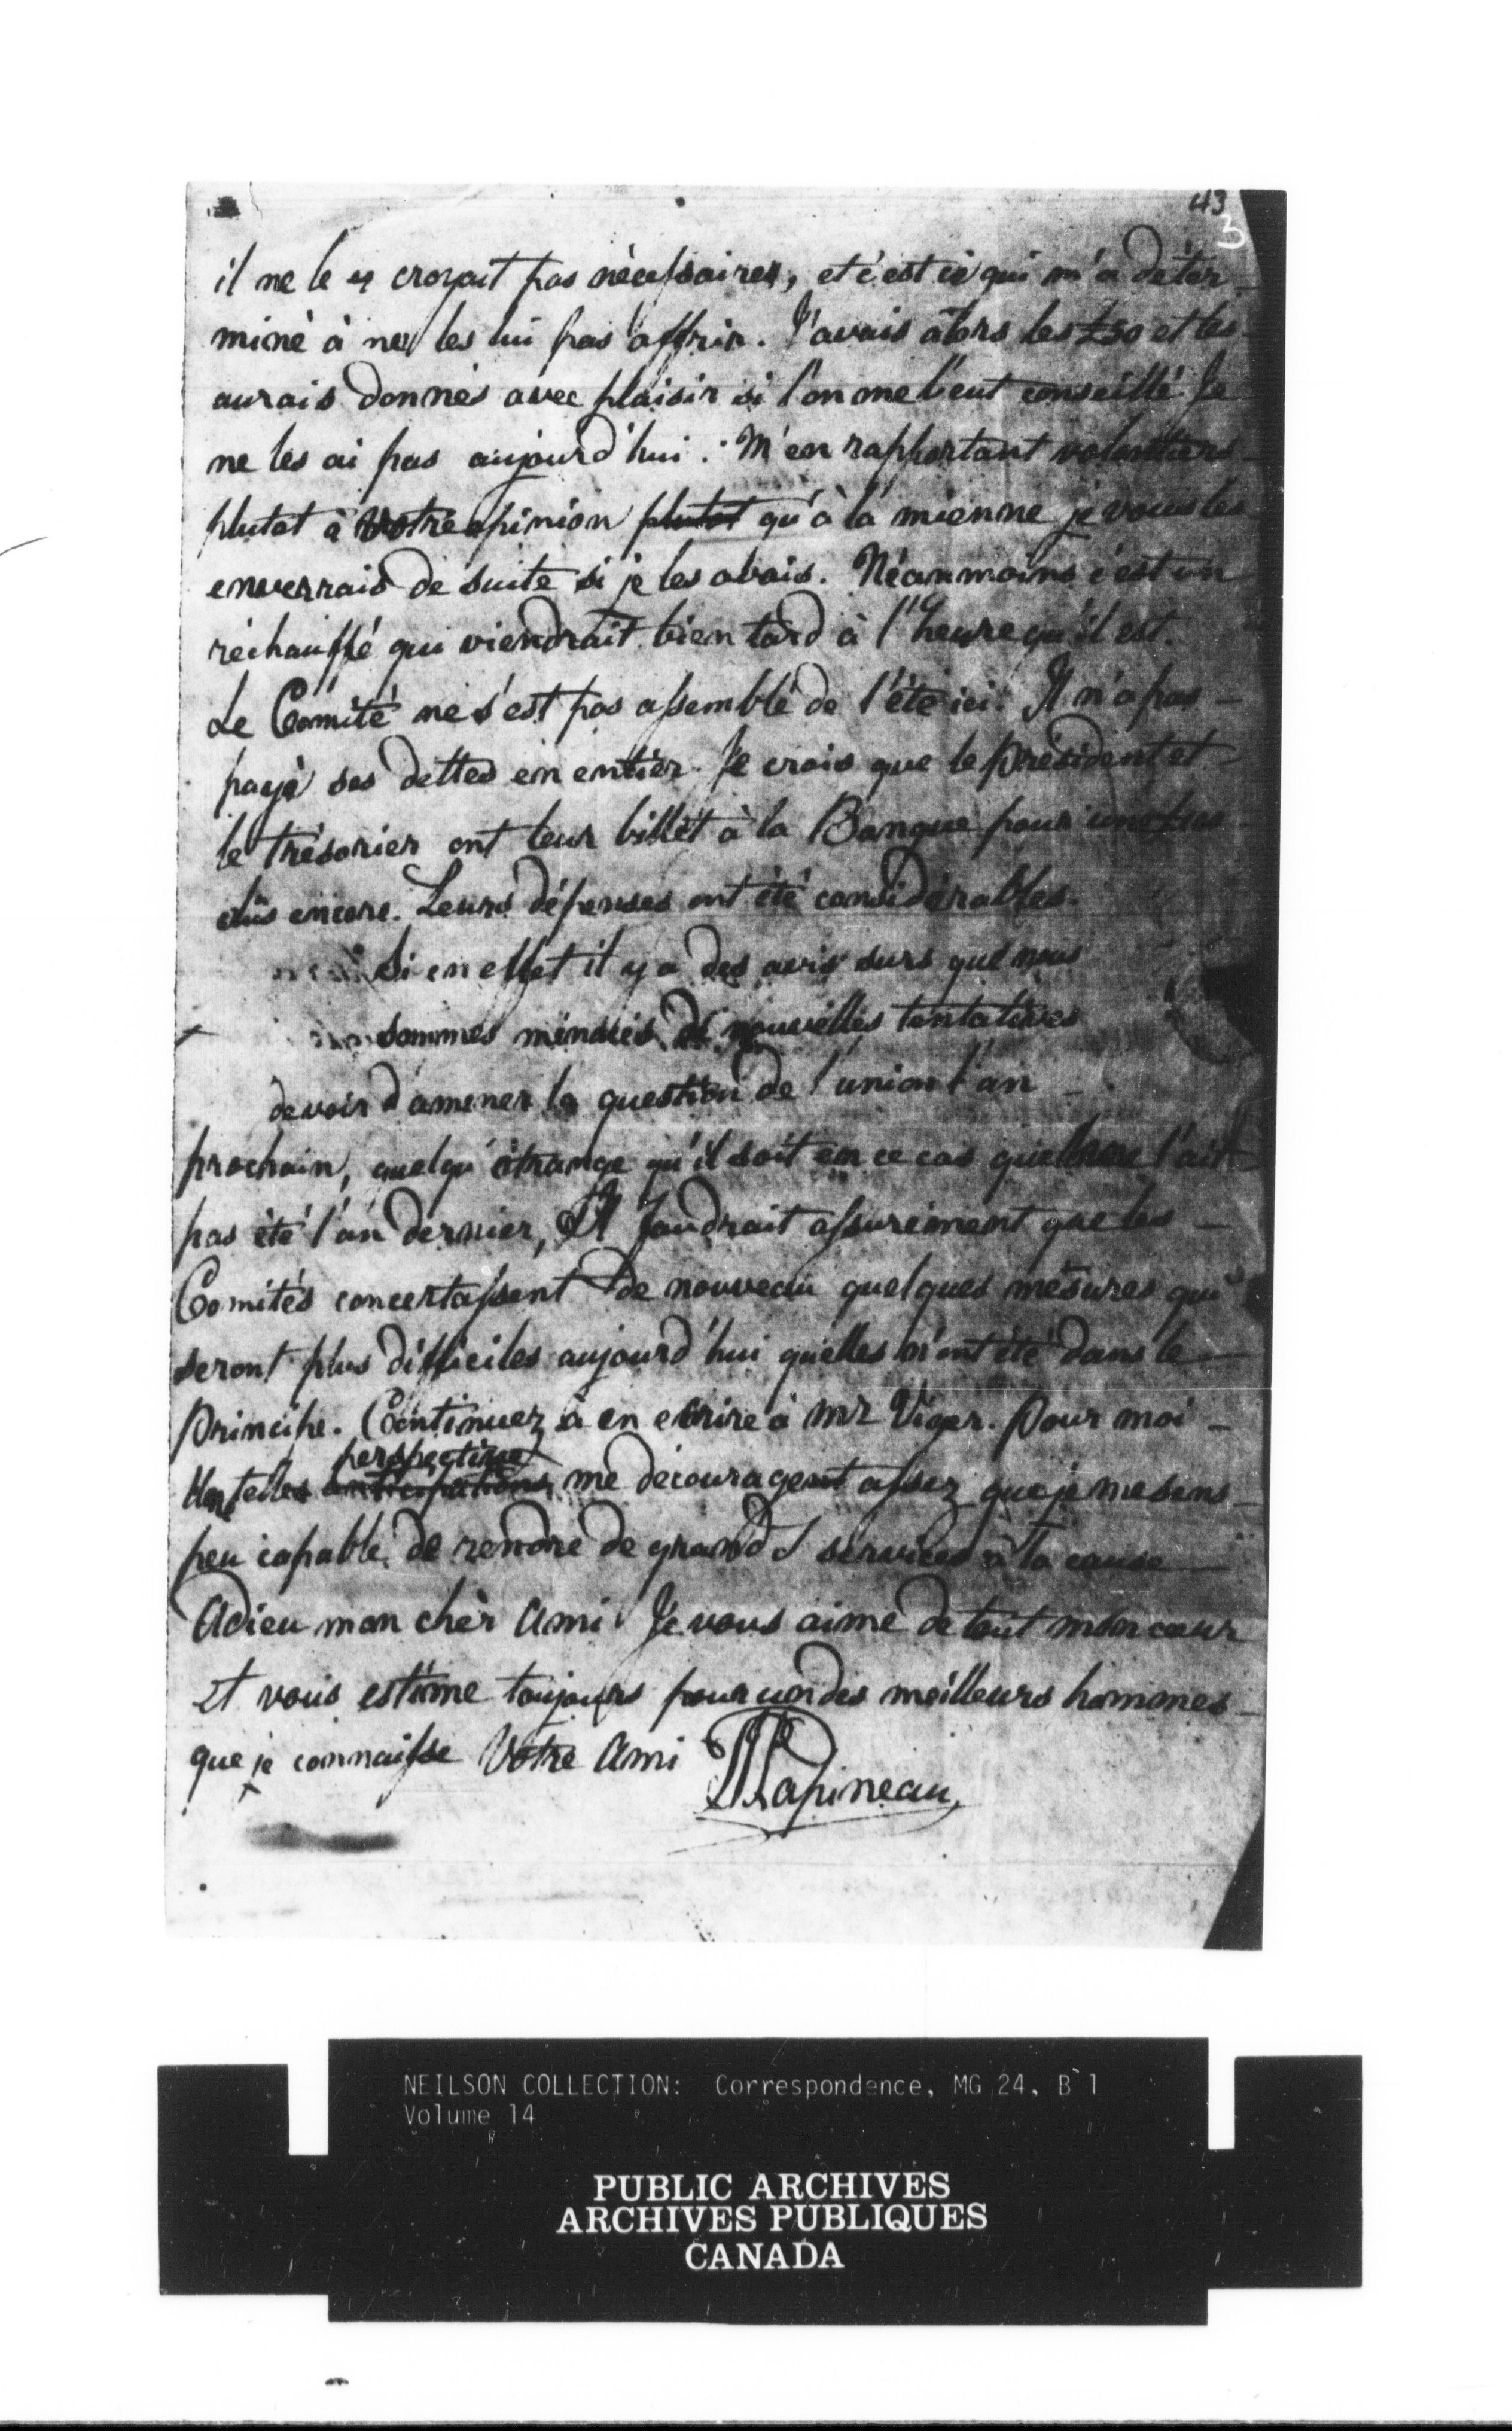 43
3
il ne le croyait pas nécessaires, et c'est ce qui m'a déter
miné à ne les lui pas offrir. J'avais alors les £50 et les
aurais donnés avec plaisir si l'on me l'eut conseillé Je
ne les ai pas aujourd'hui. M'en rapportant volontiers
plutot à votre opinion plutot qu'à la mienne je vous les
enverrais de suite si je les avais. Néanmoins c'est un
réchauffé qui viendrait bien tard à l'heure qu'il est.
Le Comité ne s'est pas assemblé de l'été ici. Il n'a pas
payé ses dettes en entier. Je crois que le président et
le trésorier ont leur billet à la Banque pour
dus encore. Leurs dépenses ont été considérables.
Si en effet il y a des avis surs que nous
sommes menacés de nouvelles tentatives
devoir d'amener la question de l'union l'an
prochain, quelqu'étrange qu'il soit en ce cas quelle ne l'ait
pas été l'an dernier, Il faudrait assurément que les
Comités concertassent de nouveau quelques mesures qui
seront plus difficiles aujourd'hui quelles n'ont été dans le
principe. Continuez à en écrire à Mr Viger. Pour moi
perspective
telles anticipations me découragent assez que je me sens
peu capable de rendre de grands services à la cause
Adieu mon chèr Ami Je vous aime de tout mon cœur
et vous estime toujours pour un des meilleurs hommes
que je connaisse Votre Ami
LJPapineau
NEILSON COLLECTION: Correspondence, MG 24, B 1
Volume 14
PUBLIC ARCHIVES
ARCHIVES PUBLIQUES
CANADA